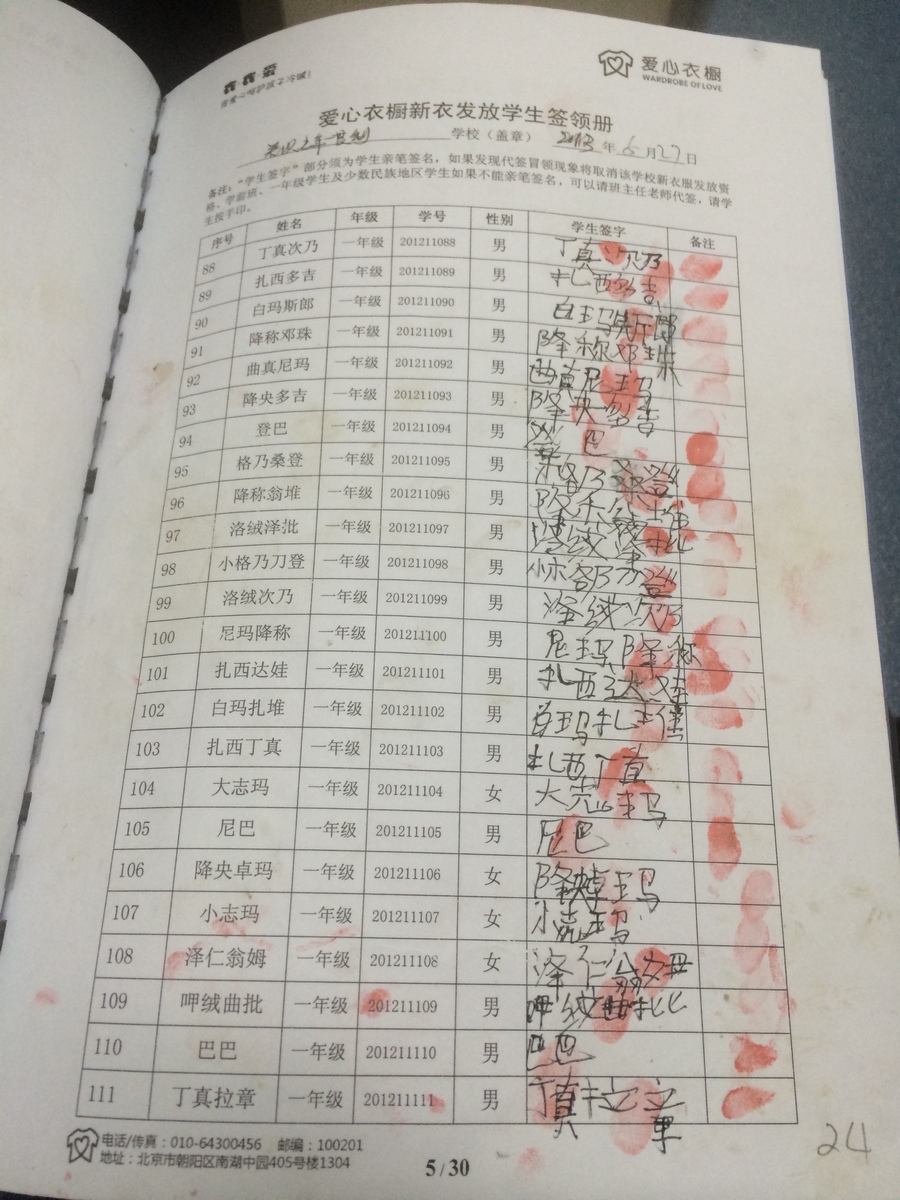 衣衣·爱
用爱心呵护孩子冷暖!
爱心衣橱
WARDROBE OF LOVE
爱心衣橱新衣发放学生签领册
学校（盖章） 2013 年 6 月 27 日
备注："学生签字"部分须为学生亲笔签名，如果发现代签冒领现象将取消该学校新衣服发放资
格、学前班、一年级学生及少数民族地区学生如果不能亲笔签名，可以请班主任老师代签，请学
生按手印。
序号 姓名 年级 学号 性别 学生签字 备注
88 丁真次乃 一年级 201211088 男 丁真次乃
89 扎西多吉 一年级 201211089 男 扎西多吉
90 白玛斯郎 一年级 201211090 男 白玛斯郎
91 降称邓珠 一年级 201211091 男 降称邓珠
92 曲真尼玛 一年级 201211092 男 曲真尼玛
93 降央多吉 一年级 201211093 男 降央多吉
94 登巴 一年级 201211094 男 登巴
95 格乃桑登 一年级 201211095 男 格乃桑登
96 降称翁堆 一年级 201211096 男 降称翁堆
97 洛绒泽批 一年级 201211097 男 洛绒泽批
98 小格乃刀登 一年级 201211098 男 小格乃刀登
99 洛绒次乃 一年级 201211099 男 洛绒次乃
100 尼玛降称 一年级 201211100 男 尼玛降称
101 扎西达娃 一年级 201211101 男 扎西达娃
102 白玛扎堆 一年级 201211102 男 白玛扎堆
103 扎西丁真 一年级 201211103 男 扎西丁真
104 大志玛 一年级 201211104 女 大志玛
105 尼巴 一年级 201211105 男 尼巴
106 降央卓玛 一年级 201211106 女 降央卓玛
107 小志玛 一年级 201211107 女 小志玛
108 泽仁翁姆 一年级 201211108 女 泽仁翁姆
109 呷绒曲批 一年级 201211109 男 呷绒曲批
110 巴巴 一年级 201211110 男 巴巴
111 丁真拉章 一年级 201211111 男 丁真拉章
电话/传真：010-64300456 邮编：100201
地址：北京市朝阳区南湖中园405号楼1304
5 / 30
24